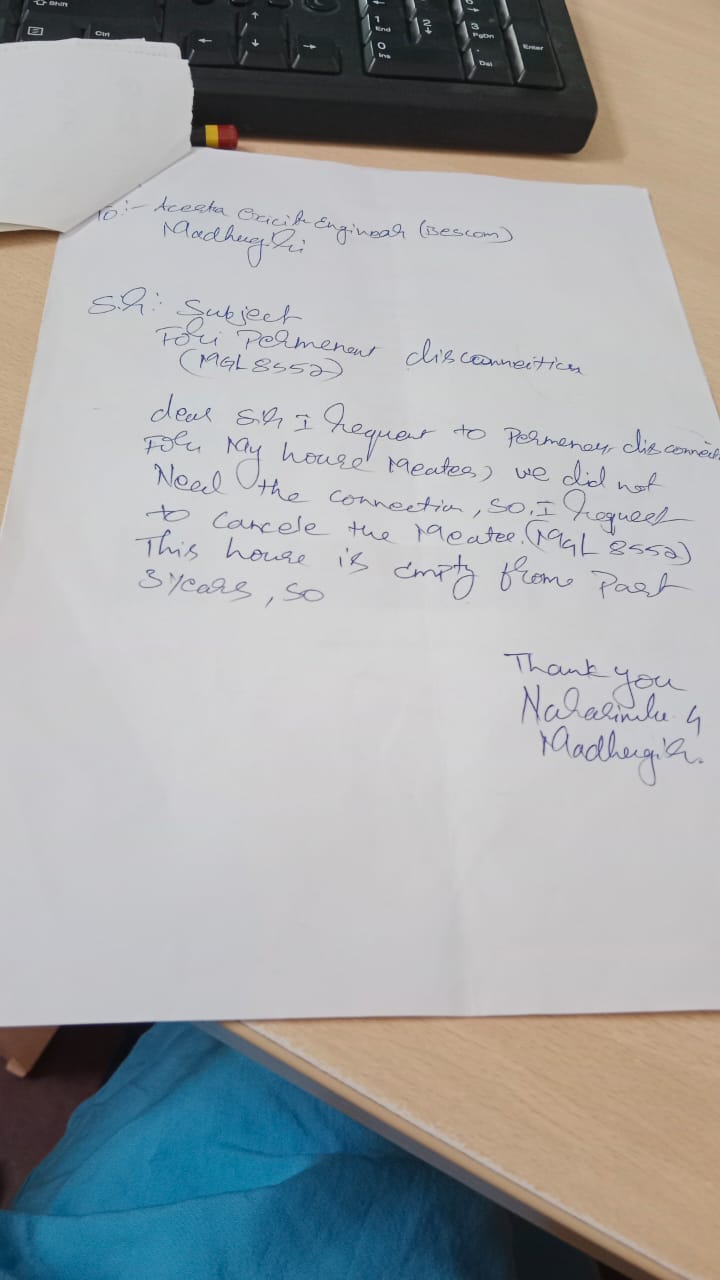 Shift
Ctrl
1 End
2
3 PgDn
0 Ins
. Del
Enter
To:- Engineer (Bescom)
Madhugiri
Sir: Subject
For Permenent disconneition
(MGL8552)
dear Sir I Request to Permenent disconnect
For My house Meater, we did not
Need the connection, so, I Request
to Cancele the Meatee. (MGL 8552)
This house is empty from Past
3 years, so
Thank you
Narasimha
Madhugiri.